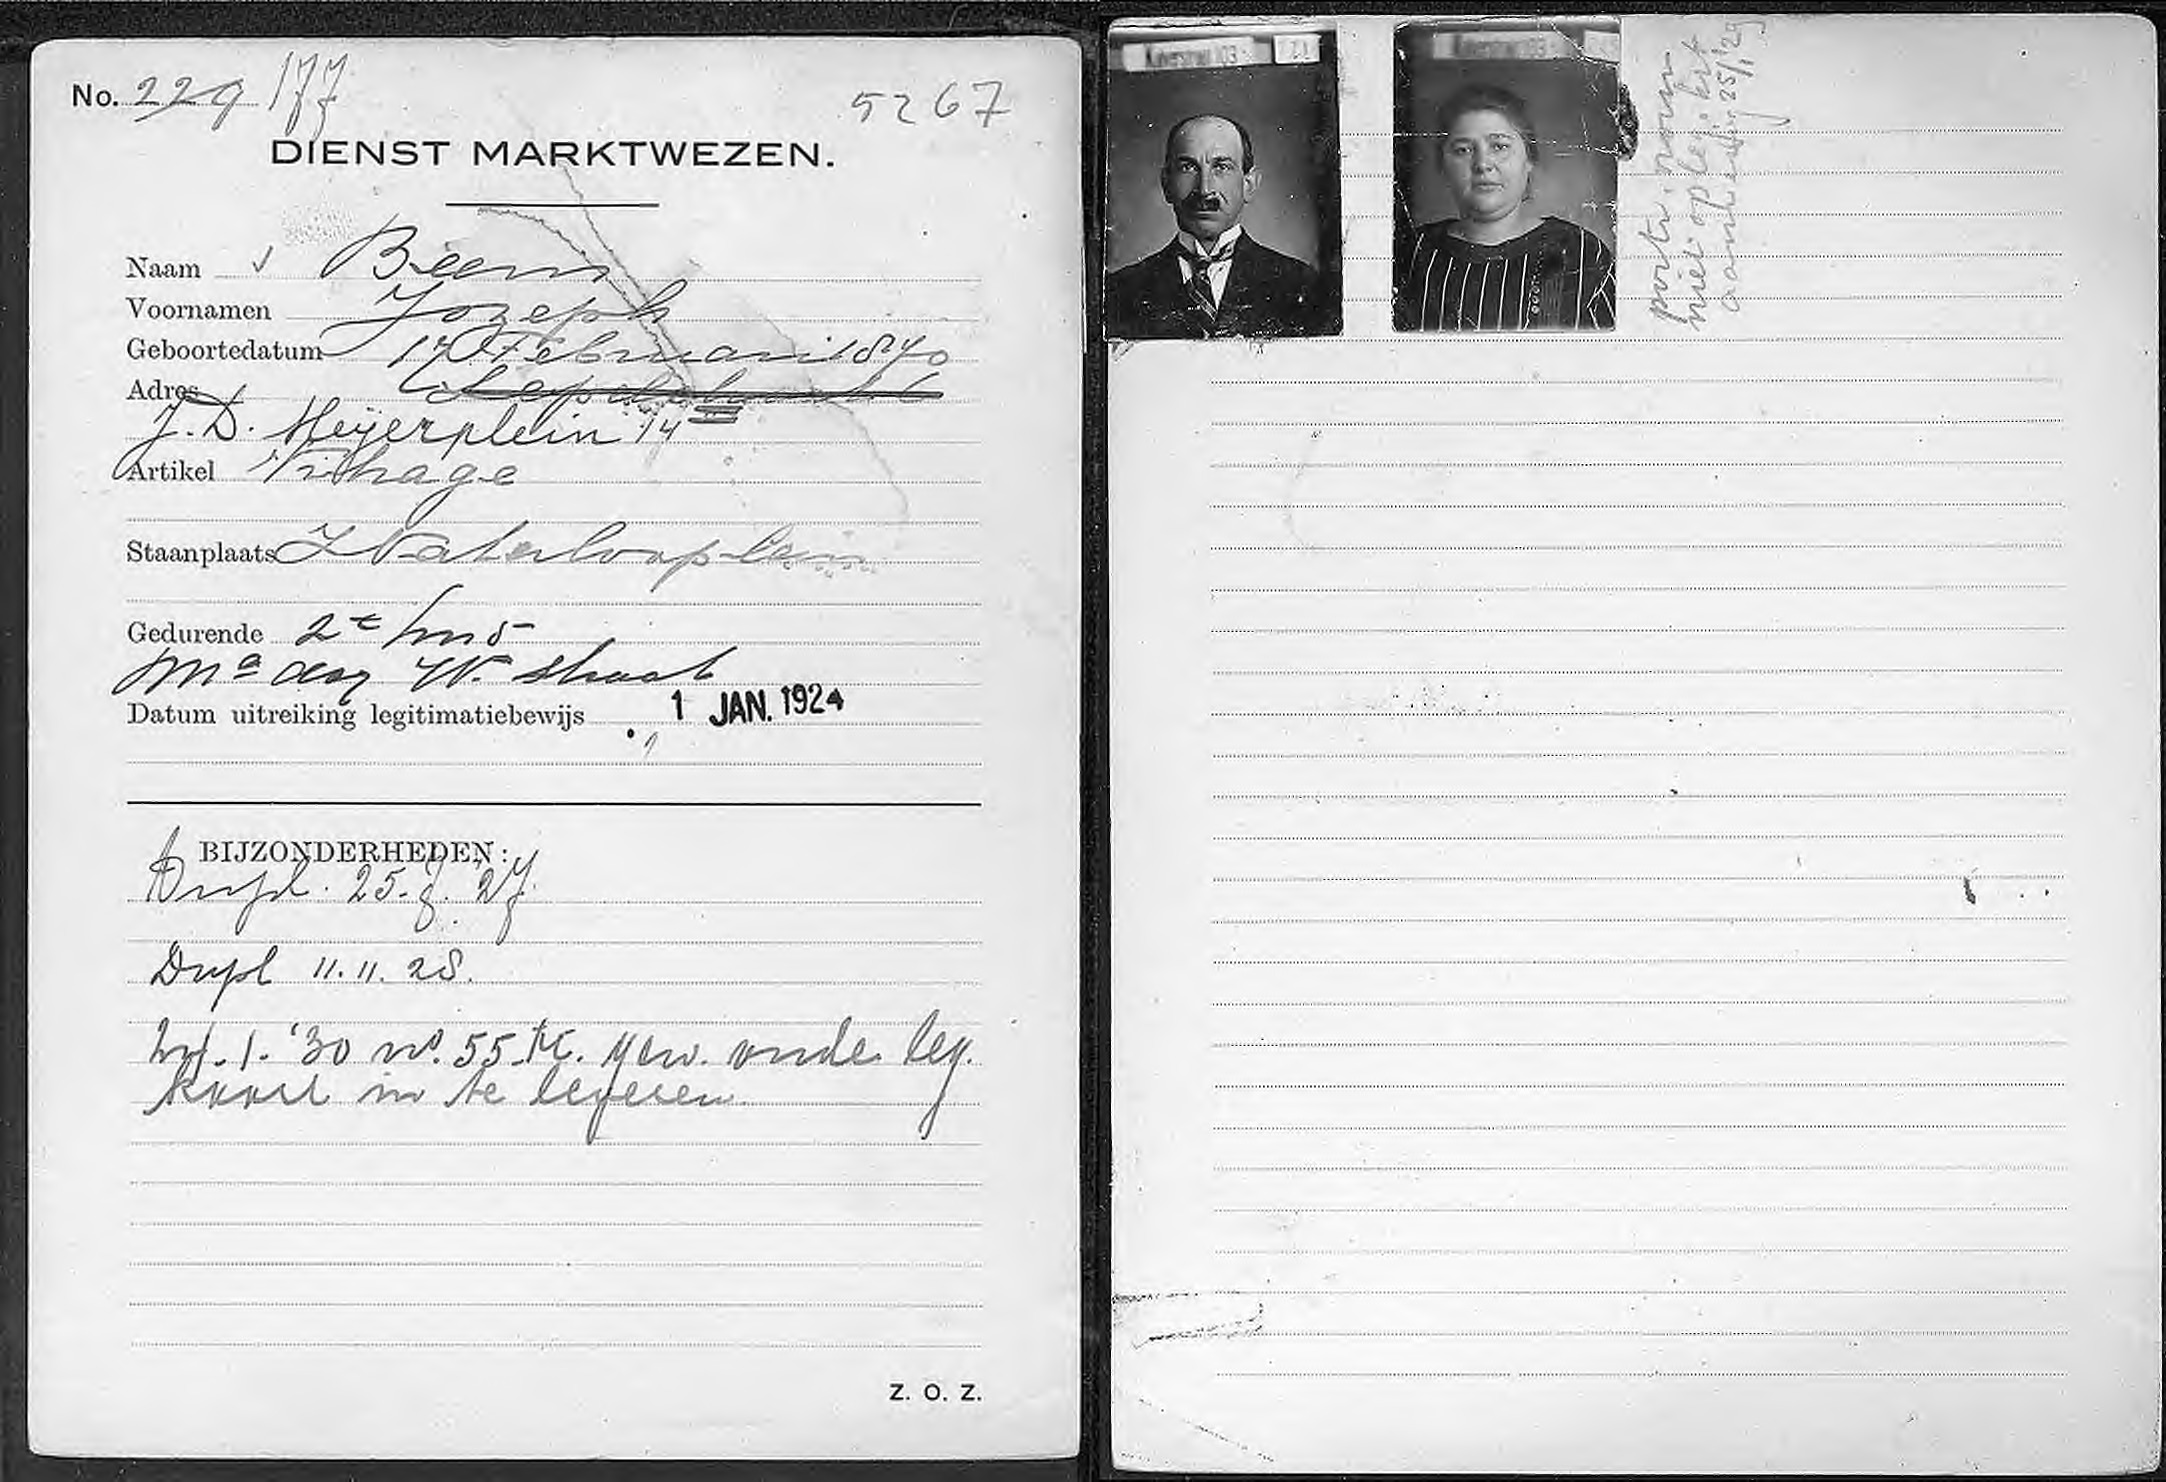 No. 229 177
5267
DIENST MARKTWEZEN.
Naam Beem
Voornamen Jozeph
Geboortedatum 17 Februari 1870
Adres
J. D. Meijerplein 14 III
Artikel
Staanplaats Waterlooplein
Gedurende 2e
Madag W. straat
Datum uitreiking legitimatiebewijs 1 JAN. 1924
BIJZONDERHEDEN:
Dupl. 25.
Dupl 11.11.28.
1. '30 no. 55 gew. oude leg.
kaart in te leveren
Z. O. Z.
Kalverstraat 103
Kalverstraat 103
portr. vrouw
niet op leg. krt
25/1 '29